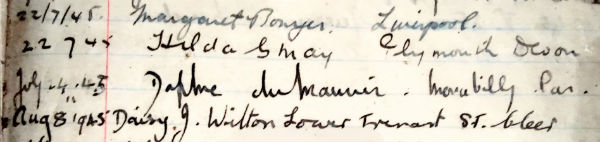 22/7/45. Margaret Bonyer. Liverpool.
22 7 45 Hilda G May Plymouth Devon
July. 4. 45 Daphne du Maurier. Menabilly Par.
Aug 8" 1945 Daisy J. Wilton Lower Tremart St. Cleer